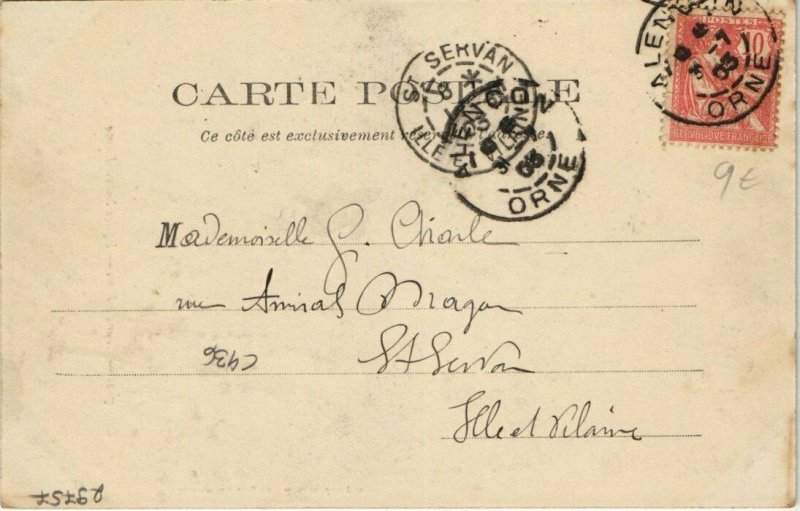 CARTE POSTALE
Ce côté est exclusivement réservé à l'adresse.
ST SERVAN
ILLE
ALENÇON
ORNE
03
ALENÇON
ORNE
03
POSTES
10
REPUBLIQUE FRANÇAISE
9€
Mademoiselle G.
rue Amiral Magon
St Servan
Ille et Vilaine
C936
29757